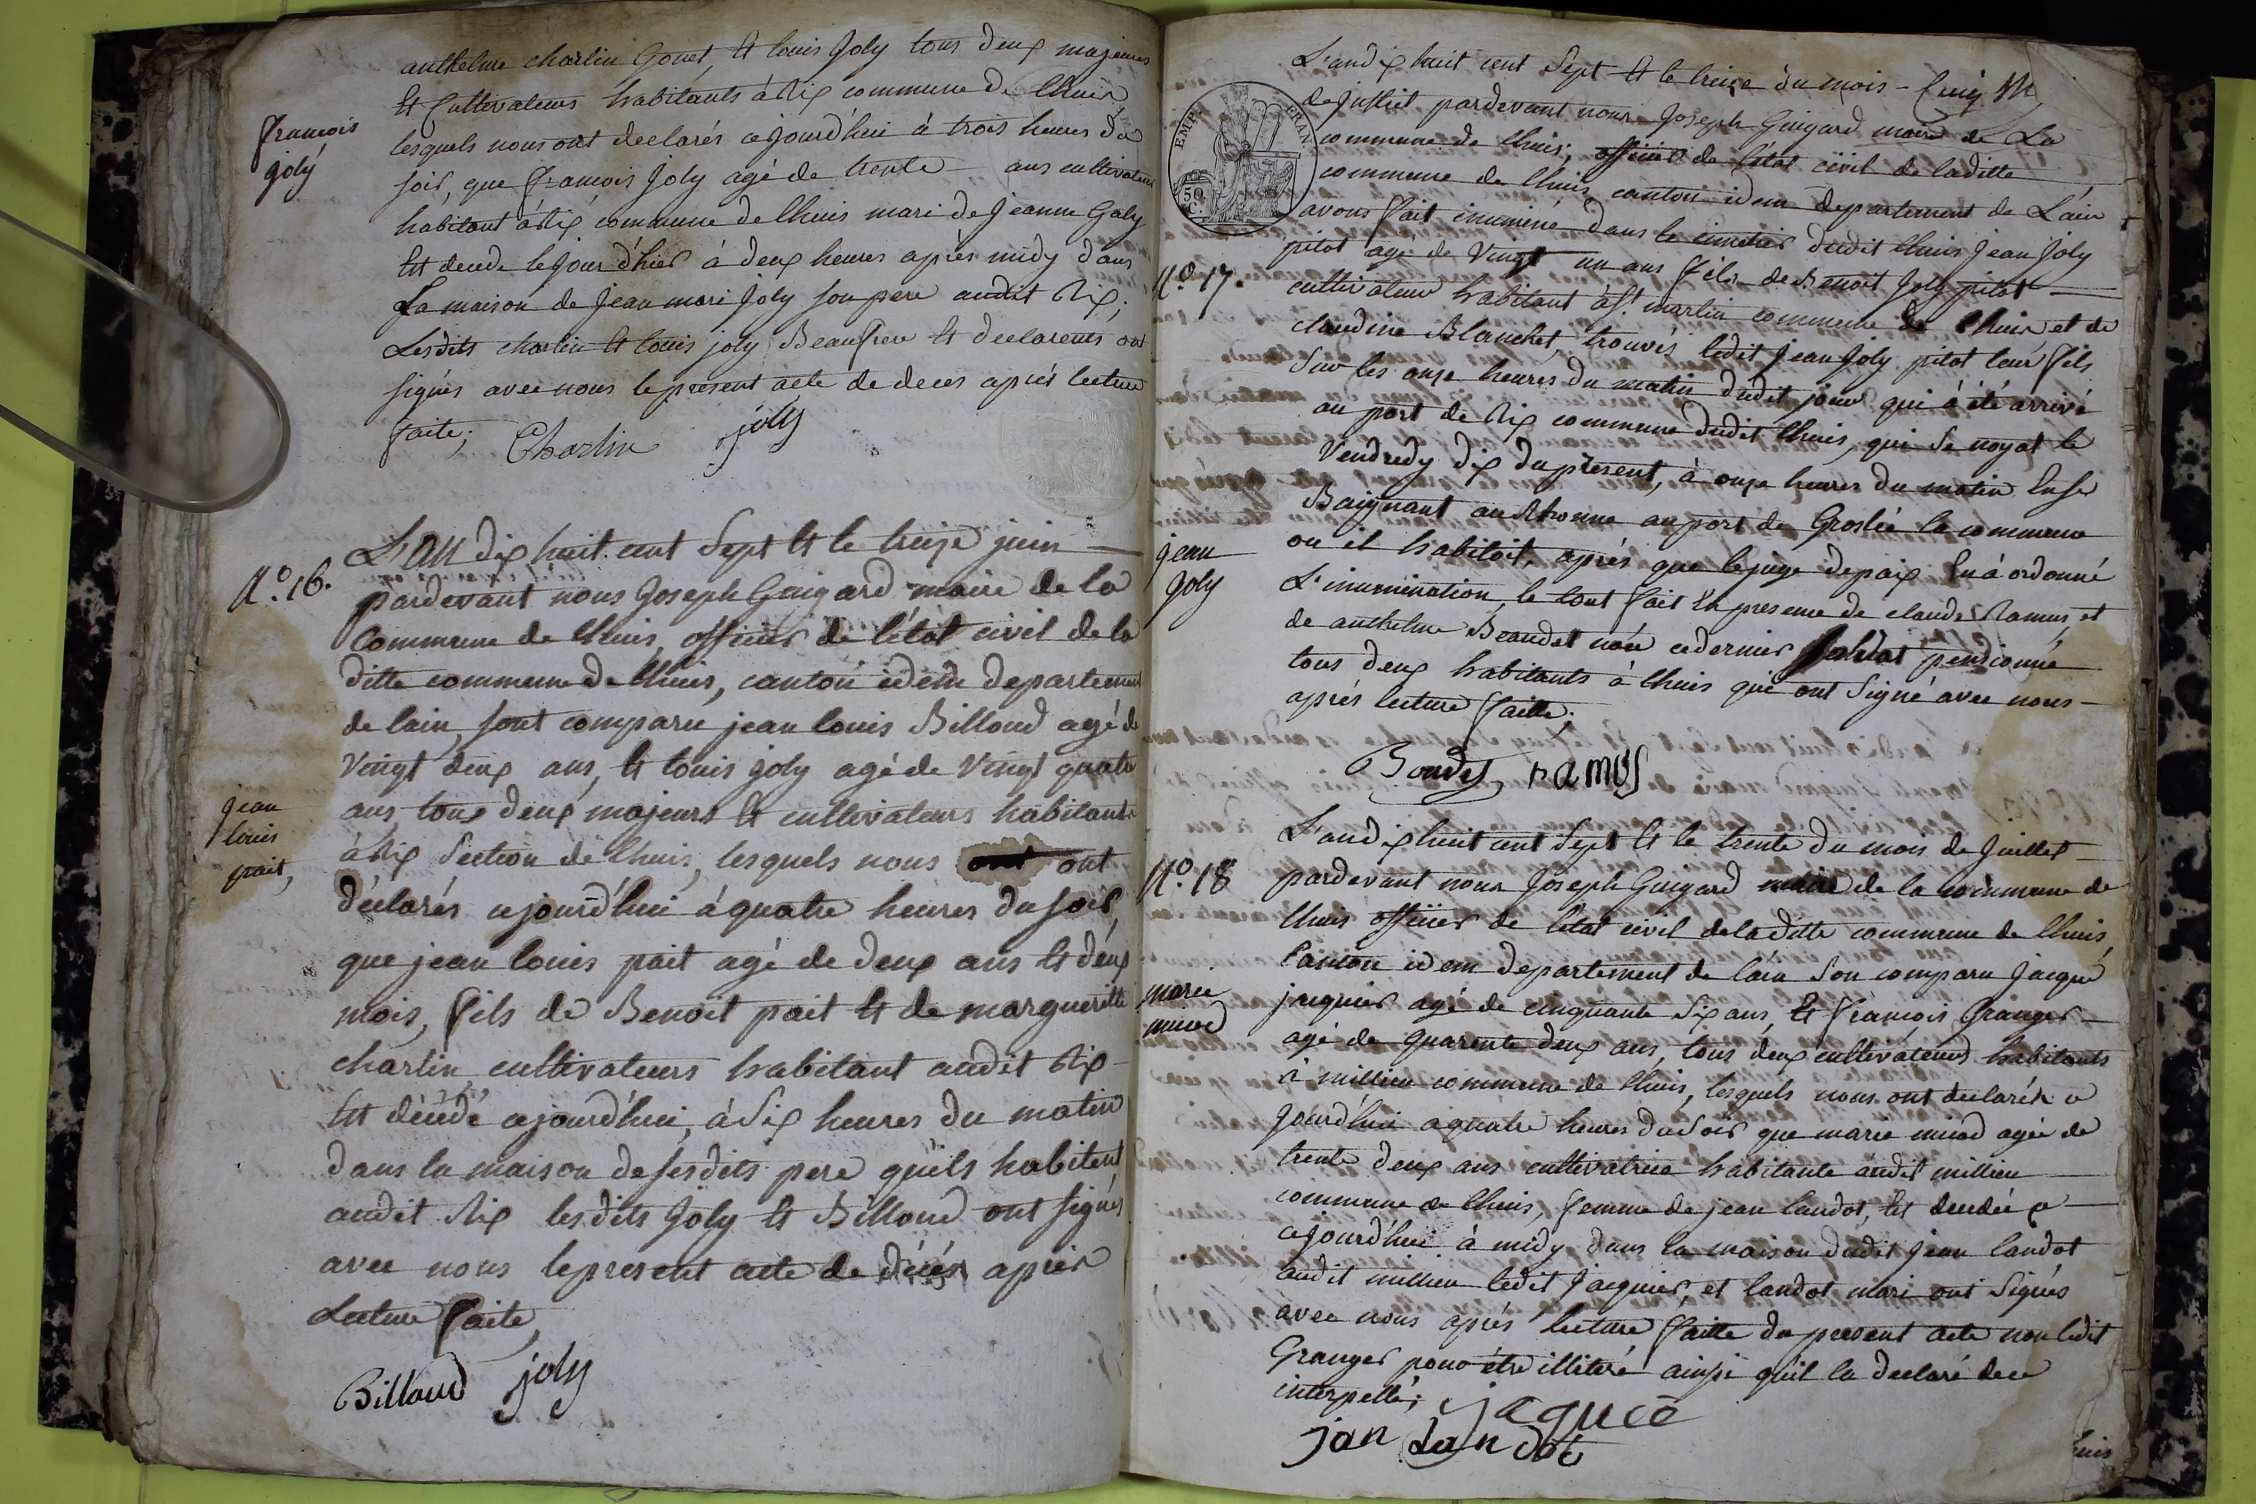 anthelme charlin Gonet, et louis Joly tous deux majeurs
et Cultivateurs habitants à Rix commune de lhuis
lesquels nous ont declarés cejourd'hui à trois heures du
soir, que françois Joly agé de trente ans cultivateur
habitant à Rix commune de lhuis mari de Jeanne Galy
est decedé le jour d'hier à deux heures après midy dans
La maison de Jean mari Joly son pere audit Rix,
Lesdits charlin et louis joly Beaufrere et declarents ont
signés avec nous le present acte de deces après lecture
faite;
Charlin joly
françois
joly
N.o 16.
L'an dix huit cent Sept et le treize juin
pardevant nous Joseph Guigard maire de la
Commune de lhuis, officier de l'état civil de la
ditte commune de lhuis, canton idem departement
de lain, sont comparu jean louis Billoud agé de
vingt deux ans, et louis joly agé de vingt quatre
ans tous deux majeurs et cultivateurs habitants
à Rix Section de lhuis, lesquels nous ont
déclarés cejourd'hui à quatre heures du soir,
que jean louis pait agé de deux ans et deux
mois, fils de Benoit pait et de margueritte
charlin cultivateurs habitant audit Rix
est décédé cejourd'hui, à six heures du matin
dans la maison de sesdits pere qu'ils habitent
audit Rix lesdits Joly et Billoud ont signés
avec nous le present acte de décés après
Lecture faite,
Billoud joly
jean
louis
pait,
EMP. FRAN.
50
C.
L'an dix huit cent Sept et le treize du mois
de juillet pardevant nous Joseph Guigard maire de La
commune de lhuis, officier de l'état civil de laditte
commune de lhuis canton idem departement de L'ain
avons fait inuminé dans le cimetier dudit lhuis Jean Joly
pitot agé de vingt un ans fils de Benoit Joly pitot
cultivateur habitant à St. martin commune de lhuis et de
claudine Blanchet, trouvés ledit Jean Joly pitot leur fils
Sur les onze heures du matin dudit jour qui à été arrivé
au port de Rix commune dudit lhuis, qui se noyat le
vendredy dix du present, à onze heures du matin En se
Baignant au Rhonne au port de Groslée la commune
ou il habitoit, après que le juge depaix En à ordonné
L'inumination, le tout fait En presence de claude Ramus et
de anthelme Beaudet non cedernier soldat pensionné
tous deux habitants à lhuis qui ont signé avec nous
après lecture faitte;
Boudet ramus
N.o 17.
jean
Joly
N.o 18
L'an dix huit cent Sept et le trente du mois de Juillet
pardevant nous Joseph Guigard maire de la commune de
lhuis officier de l'état civil de laditte commune de lhuis,
Canton idem departement de lain Son comparu Jacque
jacquier agé de cinquante six ans, et françois Granger
agé de quarente deux ans, tous deux cultivateurs habitants
à millieu commune de lhuis, lesquels nous ont declarés ce
jourd'hui a quatre heures du soir que marie muod agée de
trente deux ans cultivatrice habitante audit millieu
commune de lhuis, femme de jean landot, est decedée
cejourd'hui à midy dans la maison dudit jean landot
audit millieu ledit Jacquier, et landot mari ont signés
avec nous après lecture faitte du present acte non ledit
Granger pour être illiteré ainsi qu'il la declaré de ce
interpellé;
jaquce
jan landot
marie
muod
lhuis